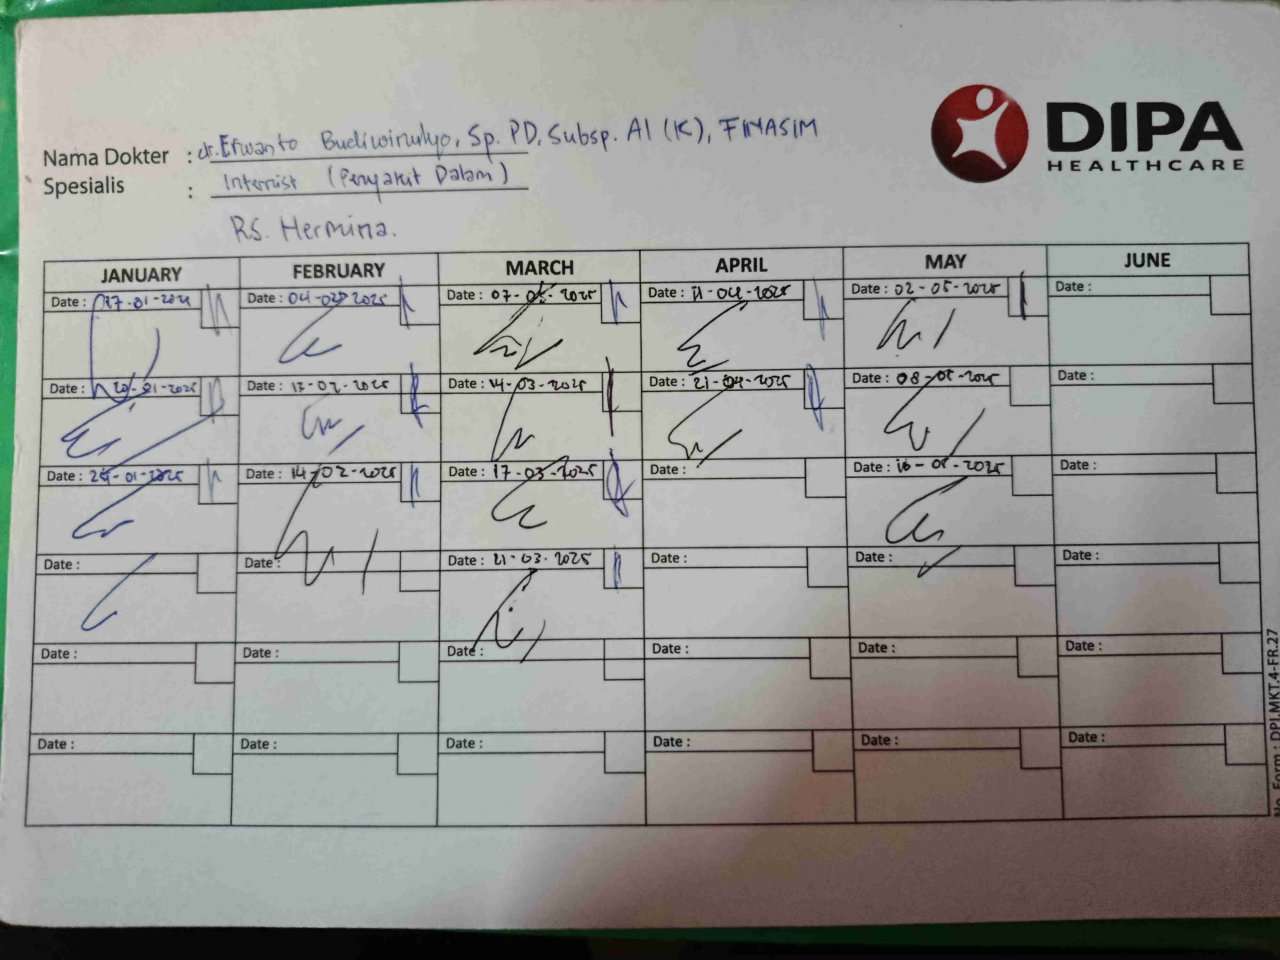 DIPA
HEALTHCARE
Nama Dokter : dr. Erwanto Budiwinulyo, Sp. PD, Subsp. AI (K), FINASIM
Spesialis : Internist (Penyakit Dalam)
RS. Hermina.
JANUARY FEBRUARY MARCH APRIL MAY JUNE
Date : 17-01- Date : 04-02-2025 Date : 07-03-2025 Date : 11-04-2025 Date : 02-05-2025 Date :
Date : 20-01-2025 Date : 12-02-2025 Date : 14-03-2025 Date : 21-04-2025 Date : 08-05-2025 Date :
Date : -01-2025 Date : 14-02-2025 Date : 17-03-2025 Date : Date : 16-05-2025 Date :
Date : Date : Date : 21-03-2025 Date : Date : Date :
Date : Date : Date : Date : Date : Date :
Date : Date : Date : Date : Date : Date :
No. Form : DPI.MKT.4-FR.27